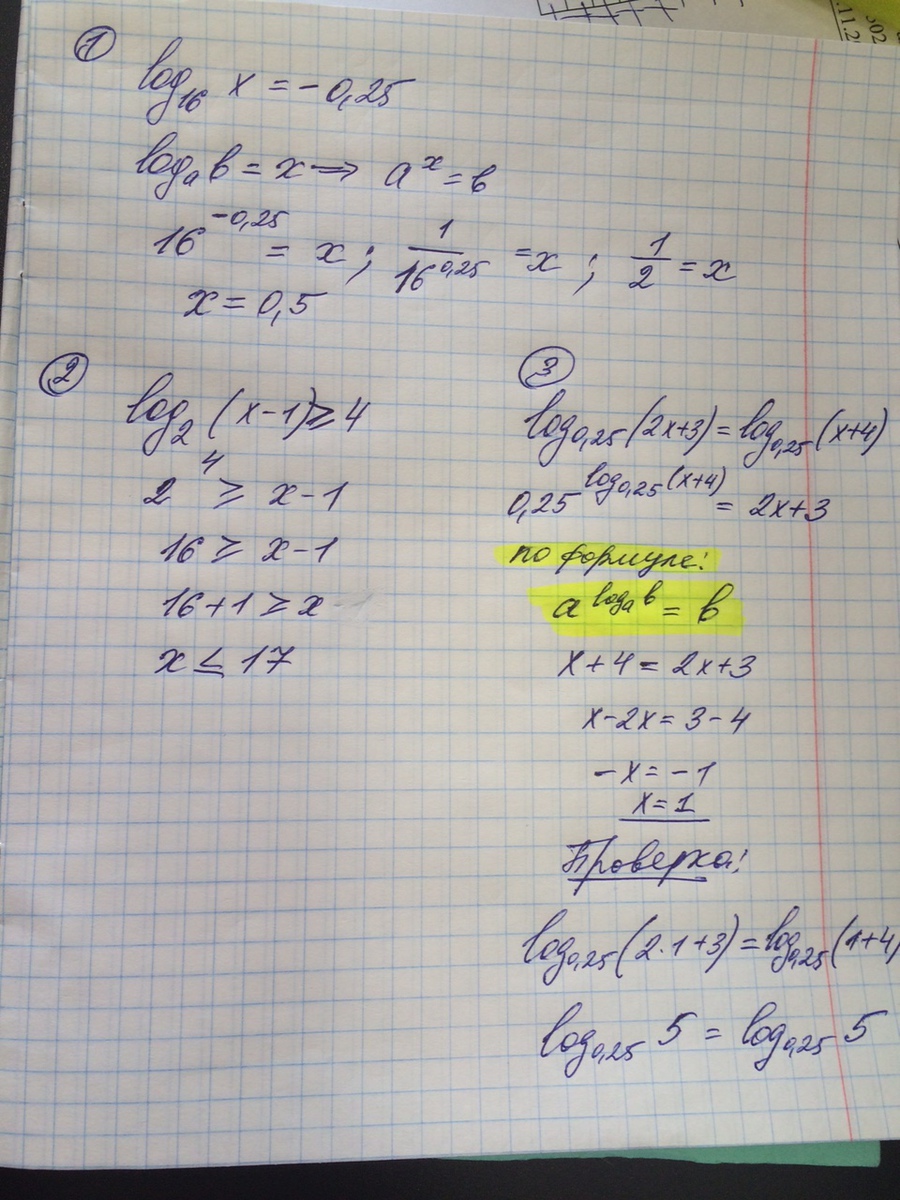 1
log₁₆ x = -0,25
logₐ b = x → aˣ = b
16^(-0,25) = x ; 1/16^(0,25) = x ; 1/2 = x
x = 0,5
2
log₂ (x-1) ≥ 4
2⁴ ≥ x-1
16 ≥ x-1
16+1 ≥ x
x ≤ 17
3
log₀,₂₅ (2x+3) = log₀,₂₅ (x+4)
0,25^(log₀,₂₅ (x+4)) = 2x+3
по формуле:
a^(logₐ b) = b
x+4 = 2x+3
x-2x = 3-4
-x = -1
x = 1
Проверка:
log₀,₂₅ (2·1+3) = log₀,₂₅ (1+4)
log₀,₂₅ 5 = log₀,₂₅ 5